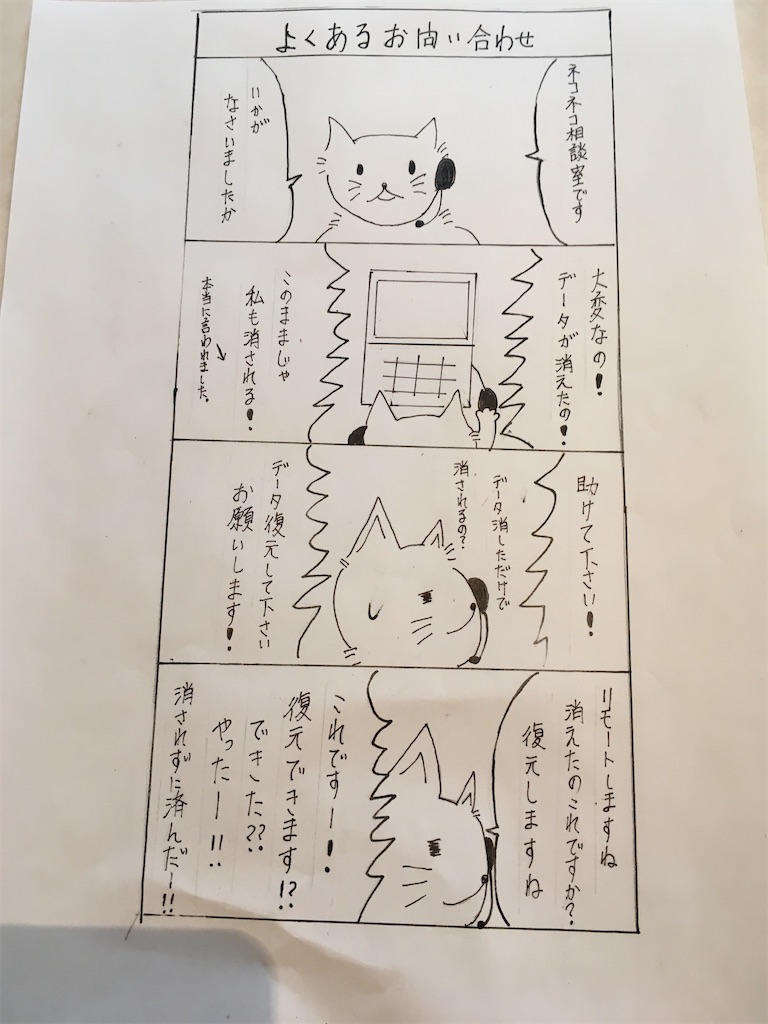 よくあるお問い合わせ
ネコネコ相談室です
いかが
なさいましたか
大変なの!
データが消えたの!
このままじゃ
私も消される!
本当に言われました。
助けて下さい!
データ消しただけで
消されるの?
データ復元して下さい
お願いします!
リモートしますね
消えたのこれですか?
復元しますね
これですー!
復元できます!?
できた??
やったー!!
消されずに済んだー!!